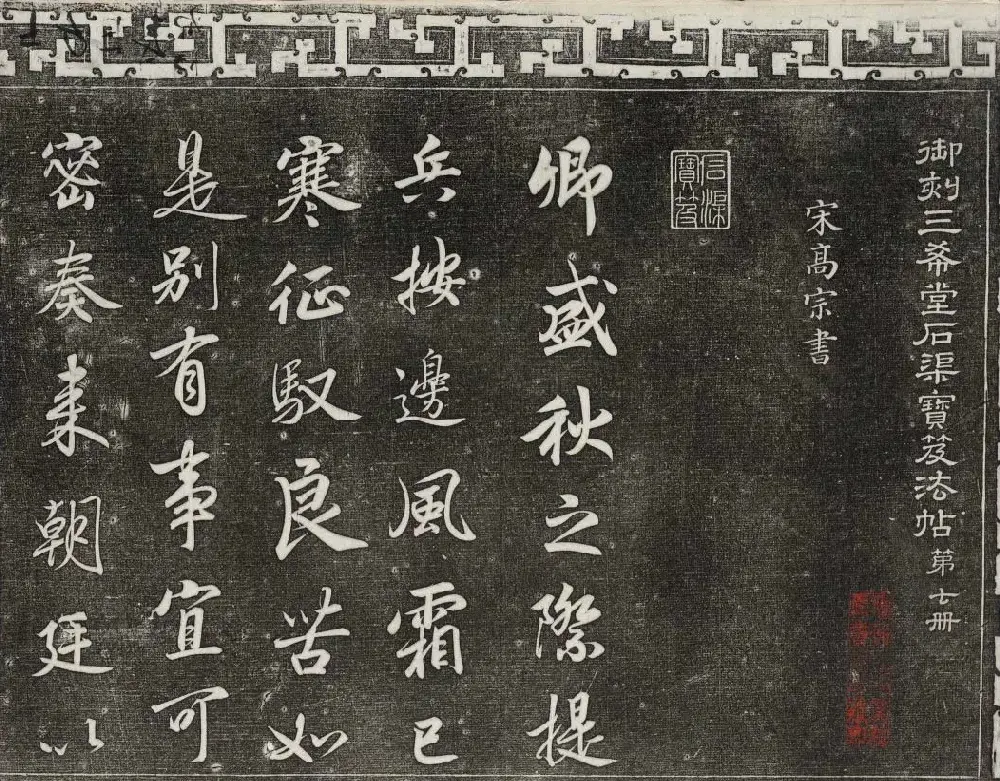 御刻三希堂石渠寶笈法帖第七册
宋高宗書
石渠寶笈
卿盛秋之際提
兵按邊風霜已
寒征馭良苦如
是別有事宜可
密奏来朝廷以